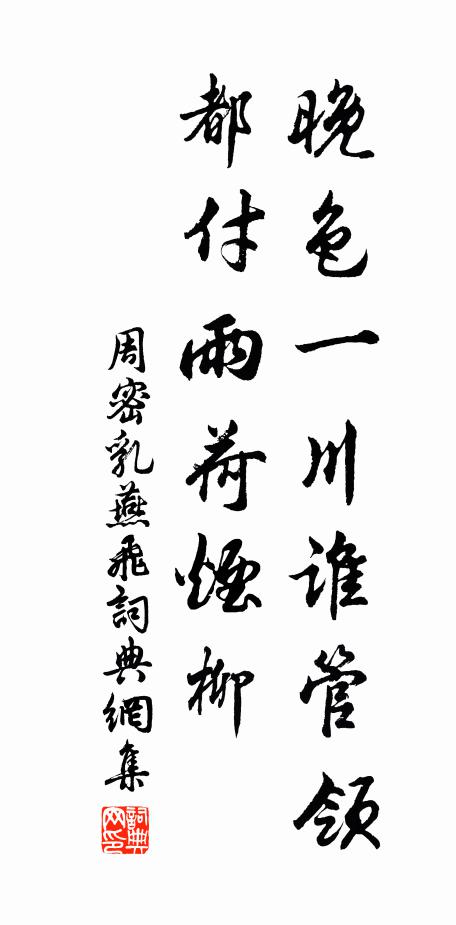 晚色一川誰管領
都付雨荷煙柳
周密乳燕飛詞典網集
詞典網印